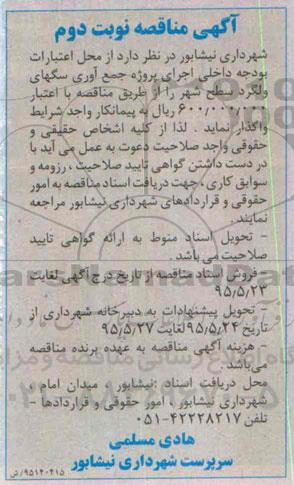 آگهی مناقصه نوبت دوم
شهرداری نیشابور در نظر دارد از محل اعتبارات
بودجه داخلی اجرای پروژه جمع آوری سگهای
ولگرد سطح شهر را از طریق مناقصه با اعتبار
ریال به پیمانکار واجد شرایط
واگذار نماید . لذا از کلیه اشخاص حقیقی و
حقوقی واجد صلاحیت دعوت به عمل می آید با
در دست داشتن گواهی تایید صلاحیت ، رزومه و
سوابق کاری ، جهت دریافت اسناد مناقصه به امور
حقوقی و قراردادهای شهرداری نیشابور مراجعه
نمایند .
- تحویل اسناد منوط به ارائه گواهی تایید
صلاحیت می باشد .
- فروش اسناد مناقصه از تاریخ درج آگهی لغایت
۹۵/۵/۲۳
- تحویل پیشنهادات به دبیرخانه شهرداری از
تاریخ ۹۵/۵/۲۴ لغایت ۹۵/۵/۲۷
- هزینه آگهی مناقصه به عهده برنده مناقصه
می باشد .
محل دریافت اسناد :نیشابور ، میدان امام ،
شهرداری نیشابور ، امور حقوقی و قراردادها -
تلفن ۴۲۲۲۸۲۱۷-۰۵۱
هادی مسلمی
سرپرست شهرداری نیشابور
۹۵۱۴۰۴۱۵/ش